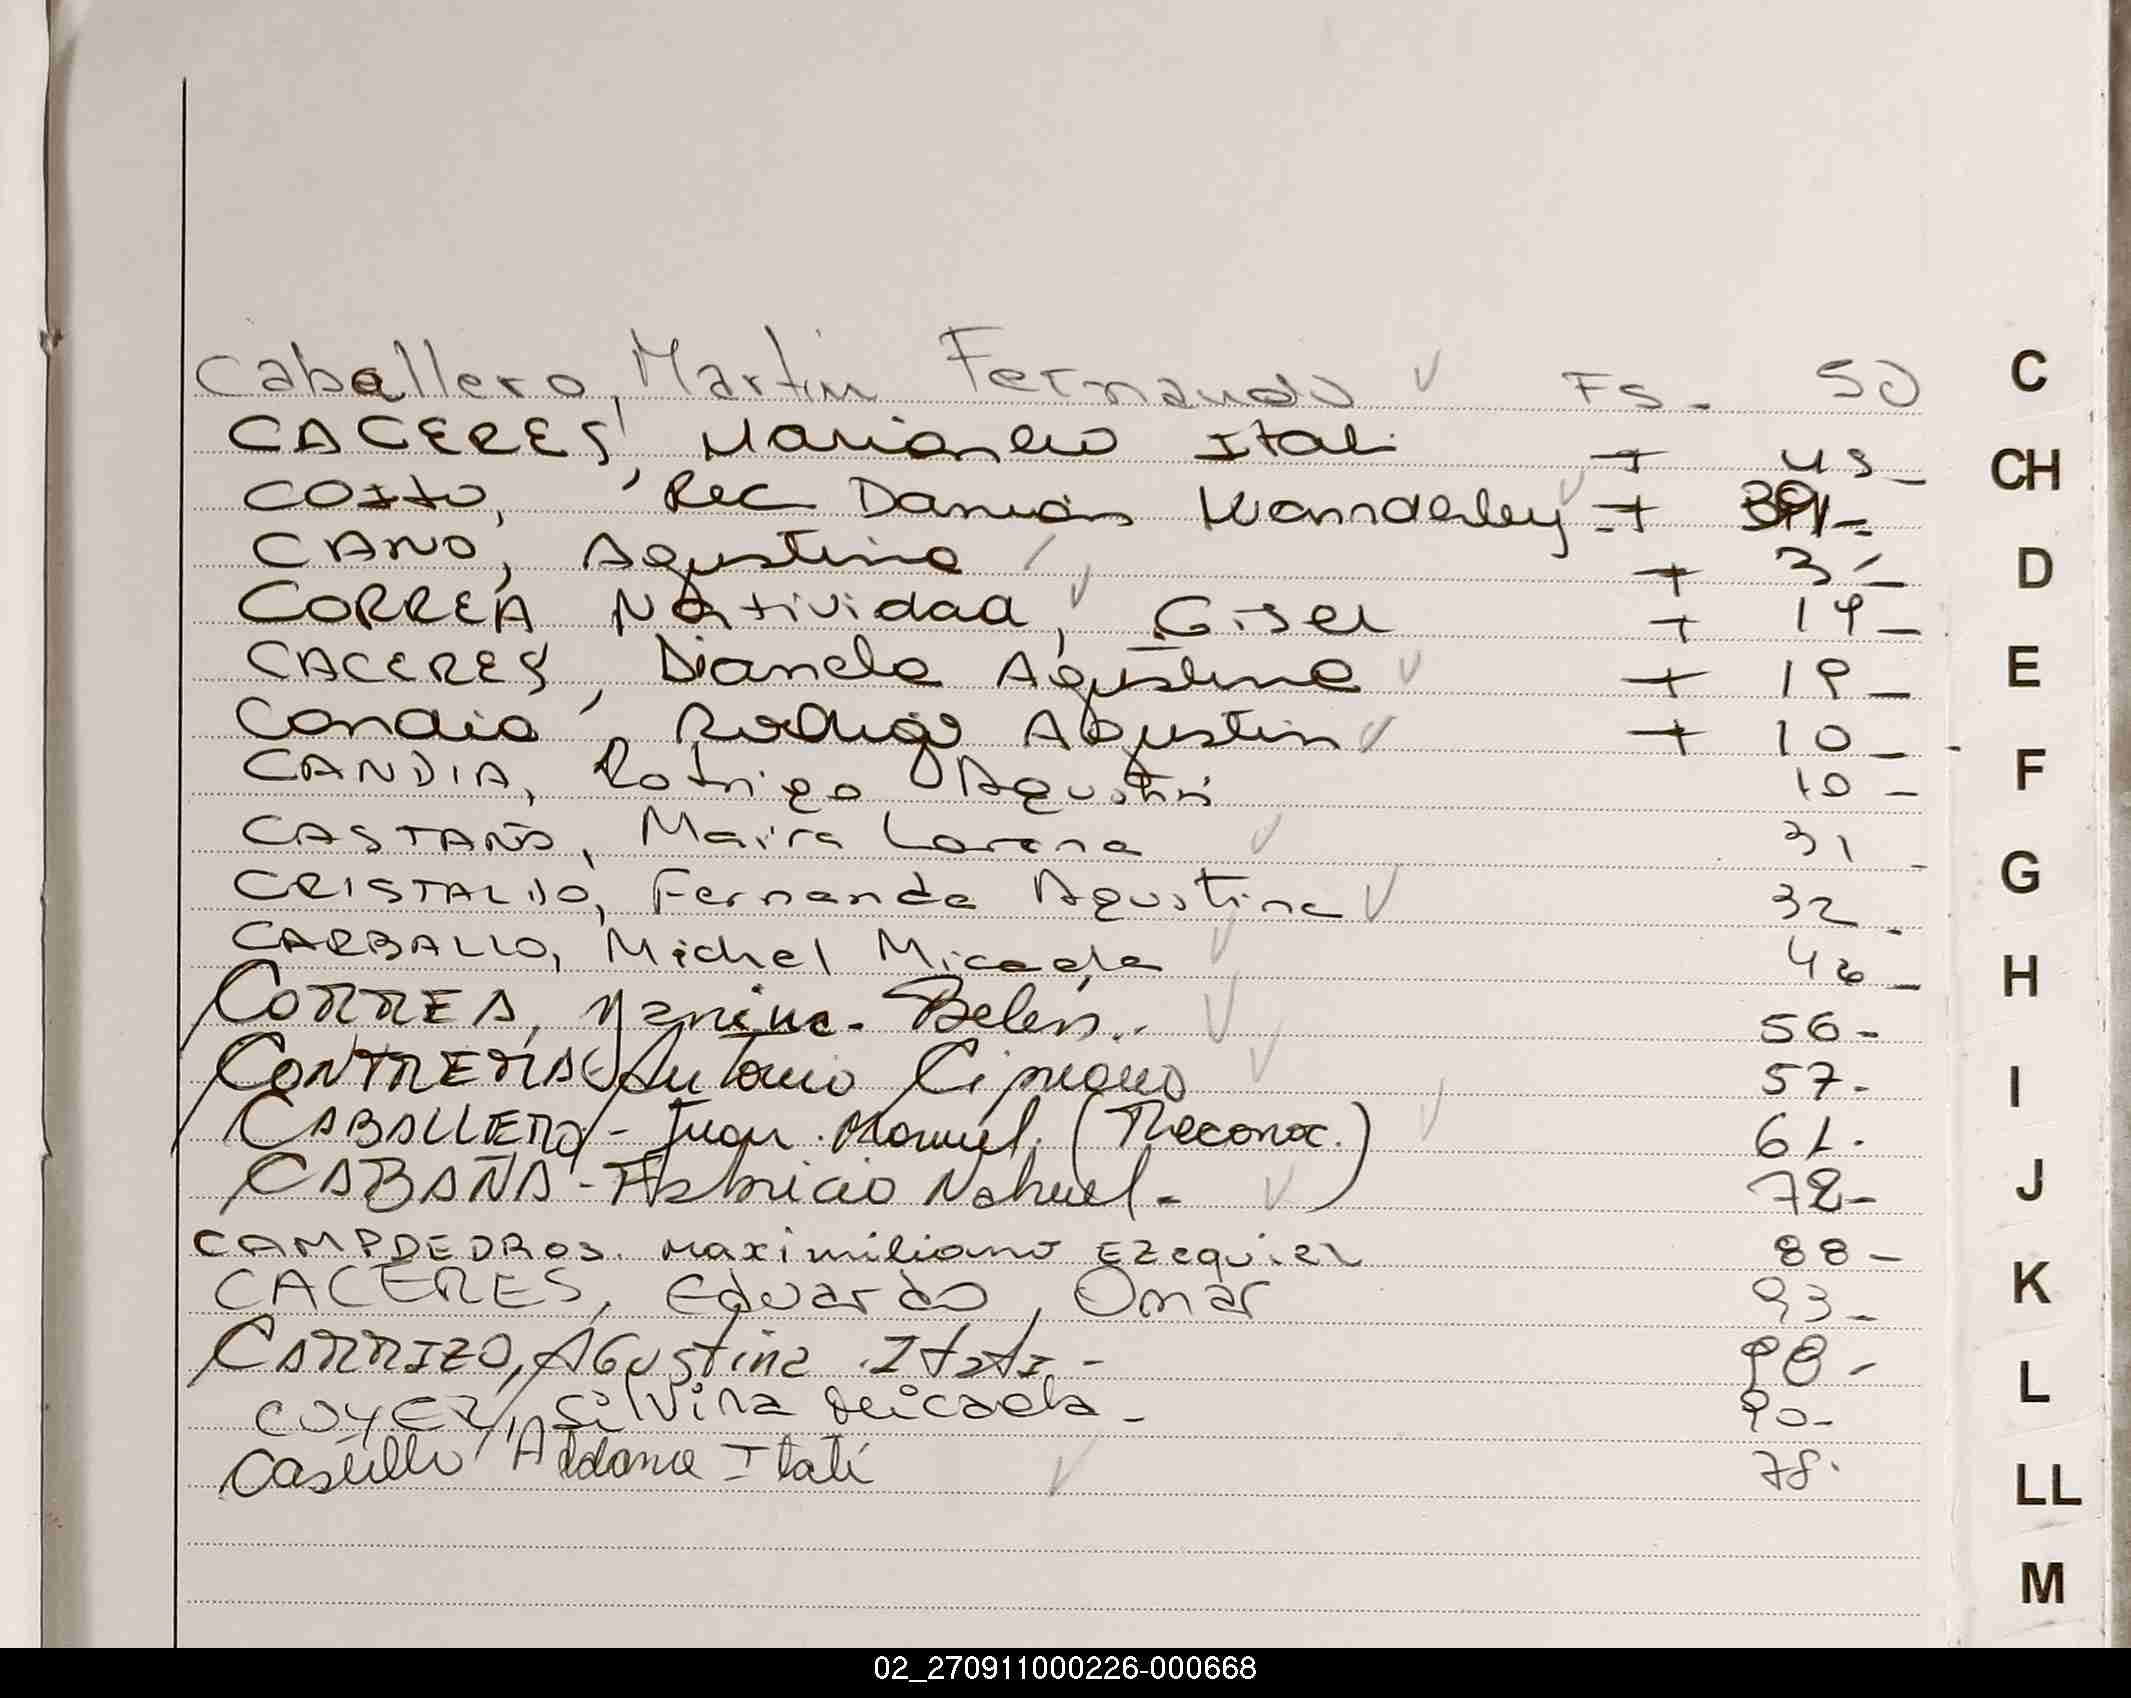 Caballero, Martin Fernando ✓ FS. 50
C
CACERES, Itati + 43 -
CH
COITO, Rec Damián Wannderley ✓ +
CANO, Agustina ✓ + 3 -
D
CORREA Natividad, ✓ Gisel + 19 -
CACERES, Dianela Agustina ✓ + 19 -
E
Candia, Rodrigo Agustin ✓ + 10 -
F
CANDIA, Rodrigo Agustin 10 -
CASTAÑO, Maira Lorena ✓ 31 -
G
CRISTALDO, Fernanda Agustina ✓ 32 -
CARBALLO, Michel Micaela ✓ 46 -
H
CORREA, Yanina - Belén. ✓ 56 -
CONTRERAS Antonio Cipriano ✓ 57 -
I
CABALLERO - Juan Manuel. (Reconoc.) ✓ 61.
CABAÑA - Fabricio Nahuel - ✓ 72 -
J
CAMPDEDROS. Maximiliano EZequiel 88 -
CACERES, Eduardo, Omar 93 -
K
CARRIZO, AGustina Itati - 98 -
COYEZ, Silvina Micaela - 90 -
L
Castillo, Itatí ✓ 78.
LL
M
02_270911000226-000668